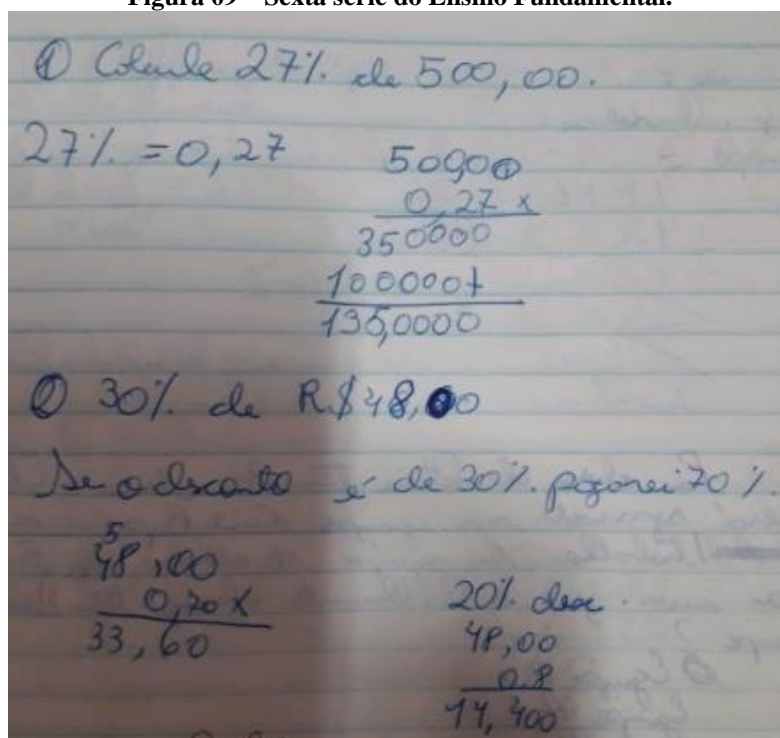 Figura 09 – Sexta série do Ensino Fundamental.
① Calcule 27% de 500,00.
27% = 0,27
500,00
0,27 x
350000
100000+
135,0000
② 30% de R$48,00
Se o desconto é de 30% pagarei 70%.
5
48,00
0,70 x
33,60
20% desc.
48,00
0.8
14,400